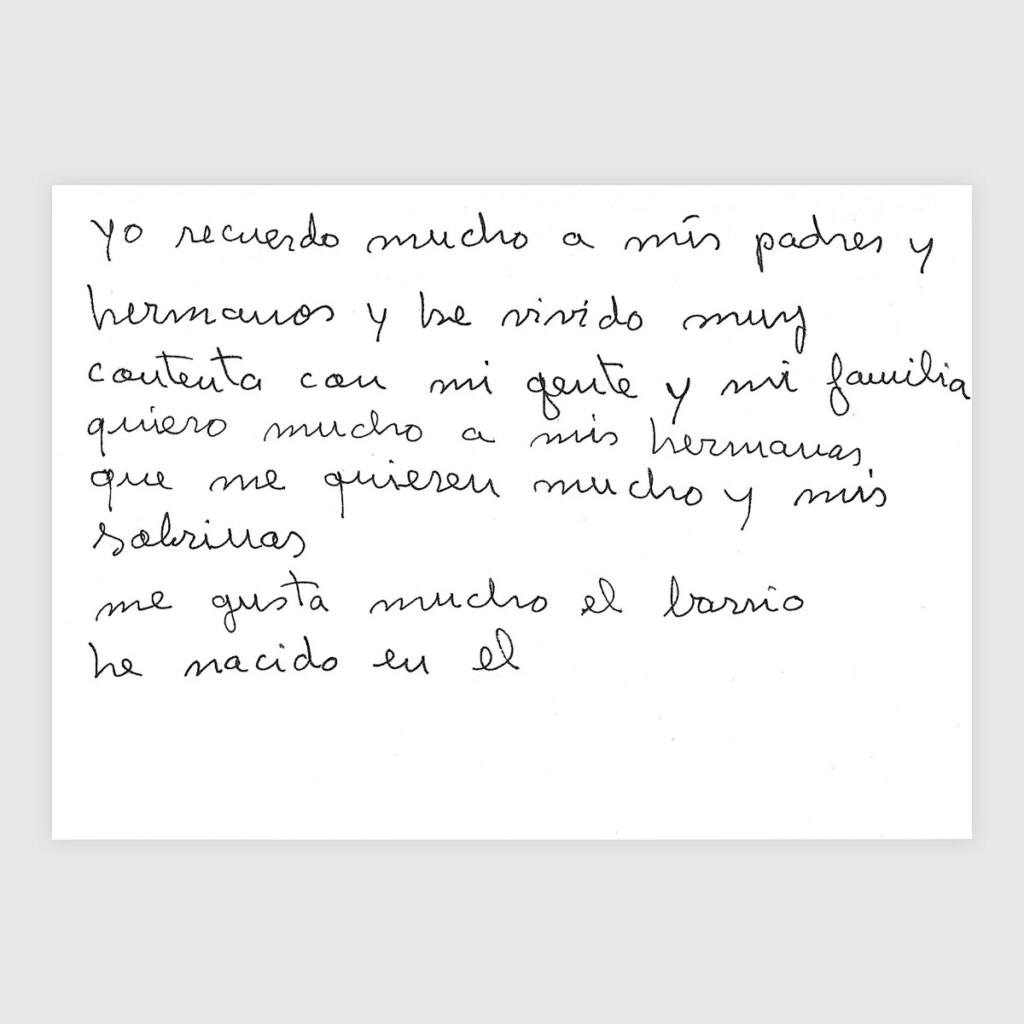 Yo recuerdo mucho a mis padres y
hermanos y he vivido muy
contenta con mi gente y mi familia
quiero mucho a mis hermanas,
que me quieren mucho y mis
sobrinas
me gusta mucho el barrio
he nacido en el